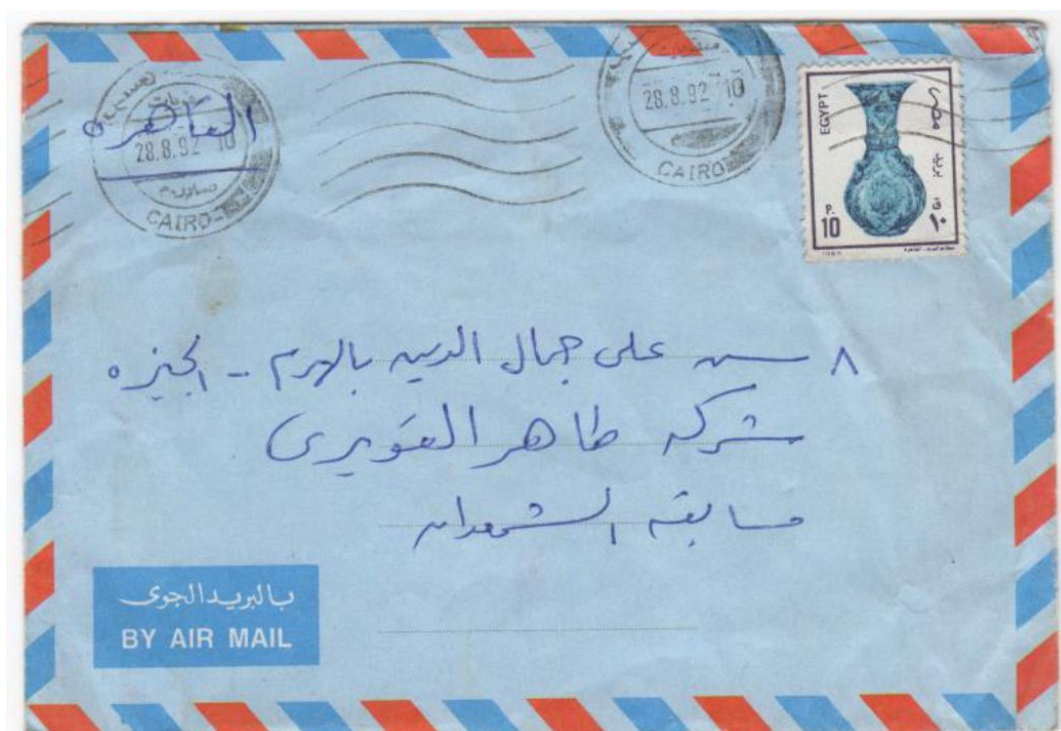 القاهرة
28.8.92 10
CAIRO
28.8.92 10
CAIRO
EGYPT
مصر
بريد
P. 10
١٠ ق
1989
٨ ش على جمال الدين بالهرم - الجيزه
شركه طاهر القويرى
مسابقه الشمعدان
بالبريد الجوى
BY AIR MAIL